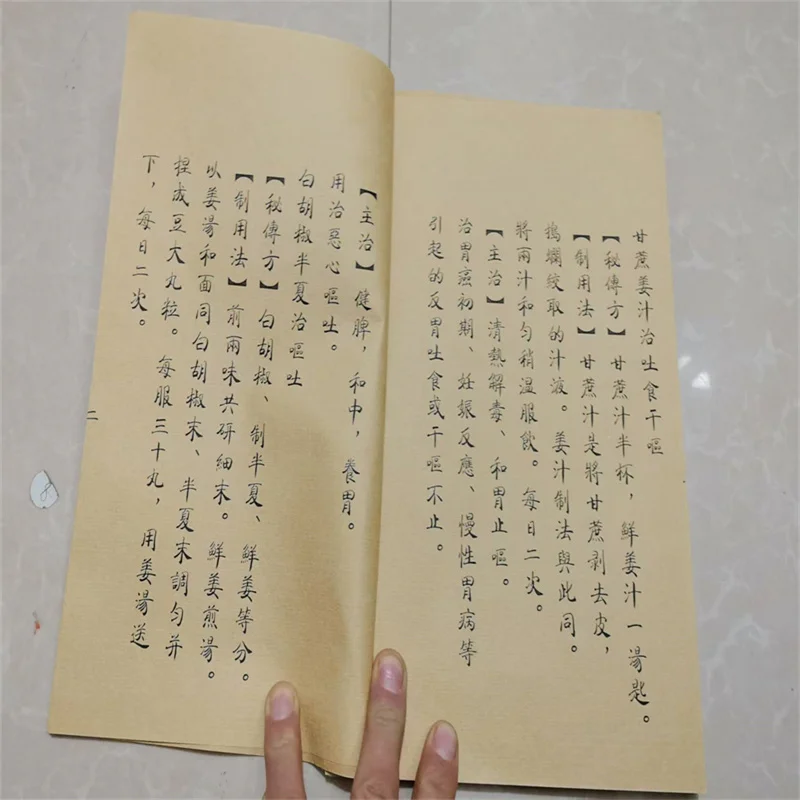 甘蔗姜汁治吐食干嘔
【秘傳方】甘蔗汁半杯，鮮姜汁一湯匙。
【制用法】甘蔗汁是將甘蔗剥去皮，
搗爛絞取的汁液。姜汁制法與此同。
將兩汁和匀稍温服飲。每日二次。
【主治】清熱解毒、和胃止嘔。
治胃癌初期、妊娠反應、慢性胃病等
引起的反胃吐食或干嘔不止。
【主治】健脾，和中，養胃。
用治惡心嘔吐。
白胡椒半夏治嘔吐
【秘傳方】白胡椒、制半夏、鮮姜等分。
【制用法】前兩味共研細末。鮮姜煎湯。
以姜湯和面同白胡椒末、半夏末調匀并
捏成豆大丸粒。每服三十丸，用姜湯送
下，每日二次。
二